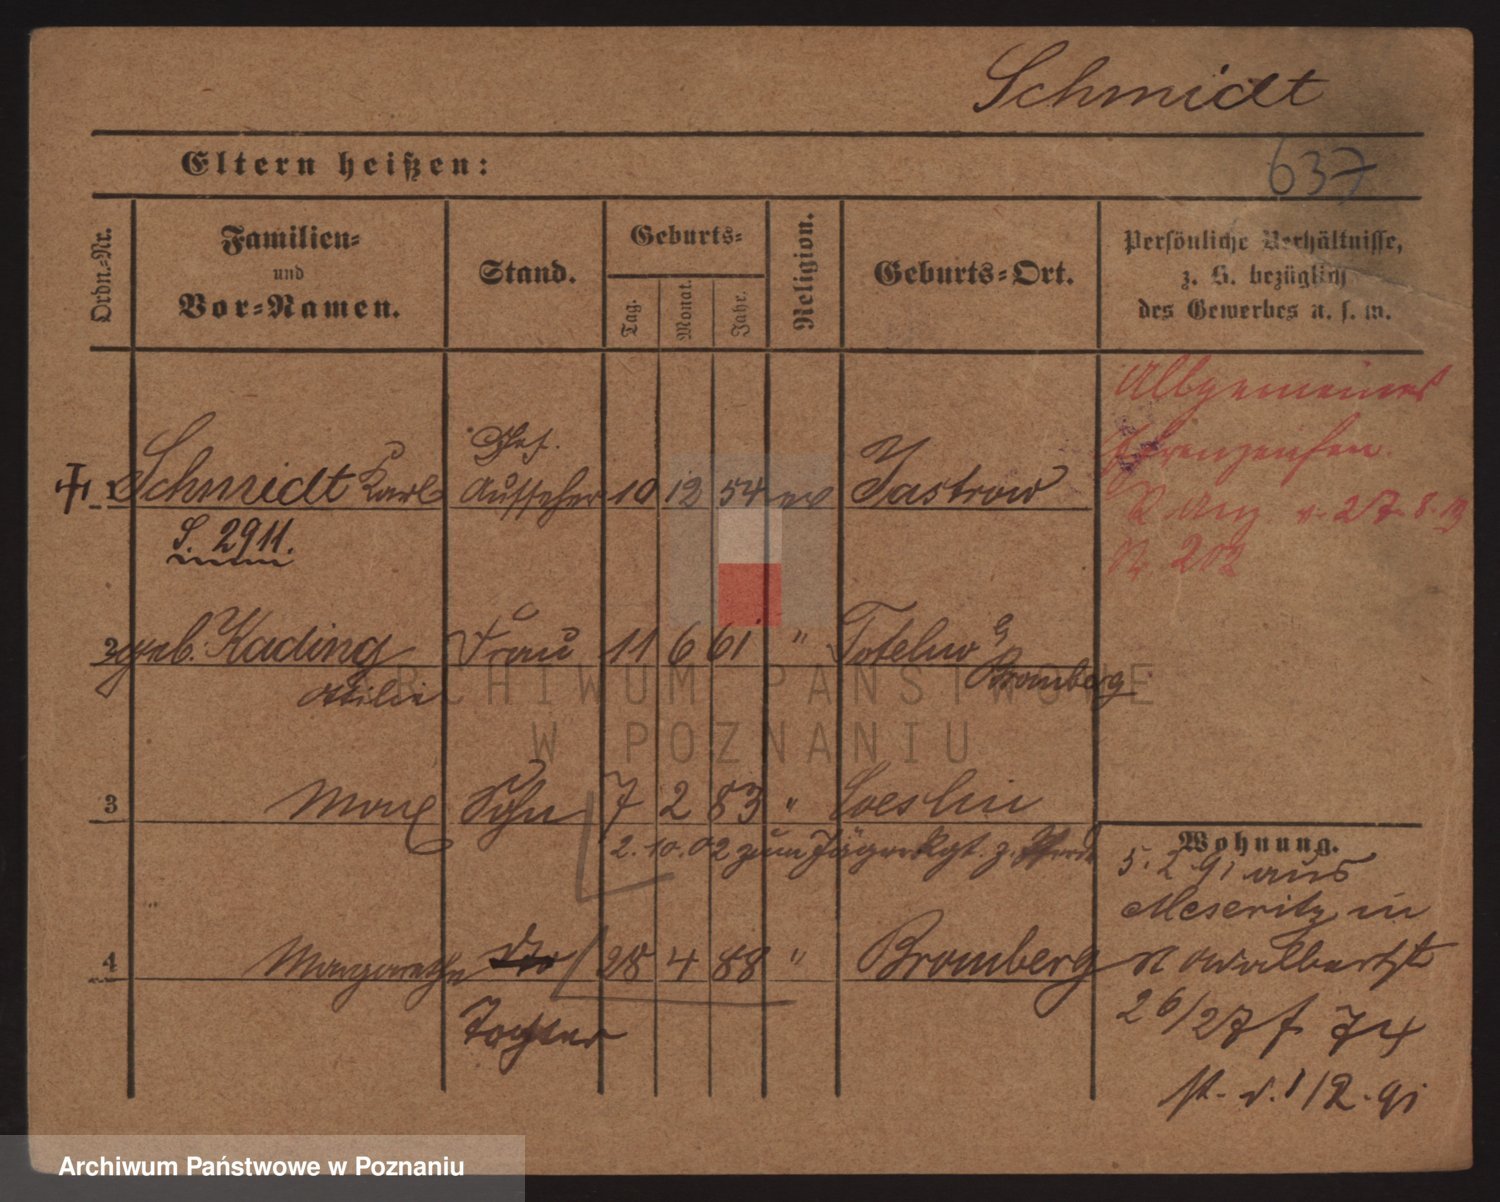 Schmidt
Eltern heißen:
637
Ordn.-Nr.
Familien-
und
Vor-Namen.
Stand.
Geburts-
Tag.
Monat.
Jahr.
Religion.
Geburts-Ort.
Persönliche Verhältnisse,
z. B. bezüglich
des Gewerbes u. s. w.
Allgemeines
Ehrenzeichen.
R Anz. v. 27. 8. 13
Nr. 202
1 Schmidt Karl Aufseher 10 12 54 ev Jastrow
S. 2911.
2 geb. Kading Frau 11 6 61 " Bromberg
Ottilie
3 Max Sohn 7 2 83 " Coeslin
2. 10. 02 zum Jäger Rgt. z. Pferde
4 Margarethe 28 4 88 " Bromberg
Tochter
Wohnung.
5. 2. 91 aus
Meseritz in
Nowalbertstr
26/27 f. 74
v. 1/2. 91
ARCHIWUM PAŃSTWOWE
W POZNANIU
Archiwum Państwowe w Poznaniu